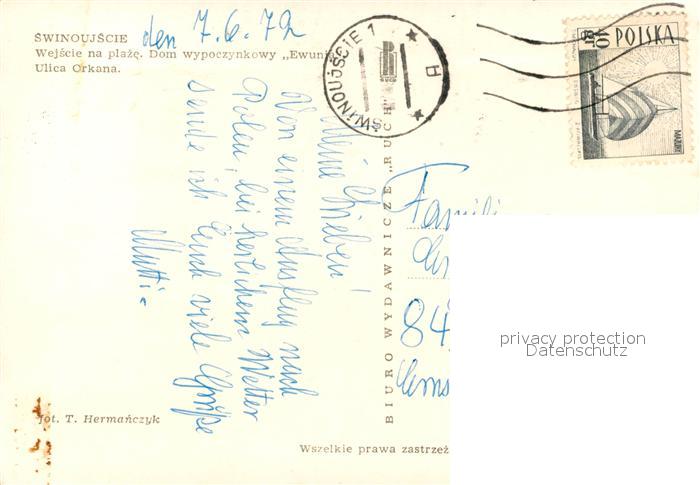 ŚWINOUJŚCIE
den 7.6.72
Wejście na plażę. Dom wypoczynkowy „Ewuni
Ulica Orkana.
ŚWINOUJŚCIE 1
H
40 GR POLSKA
MAZURY
Meine Lieben!
Von einem Ausflug nach
Polen bei herlichem Wetter
sende ich Euch viele Grüße
Mutti
BIURO WYDAWNICZE „RUCH"
Famili
84
privacy protection
Datenschutz
fot. T. Hermańczyk
Wszelkie prawa zastrzeż